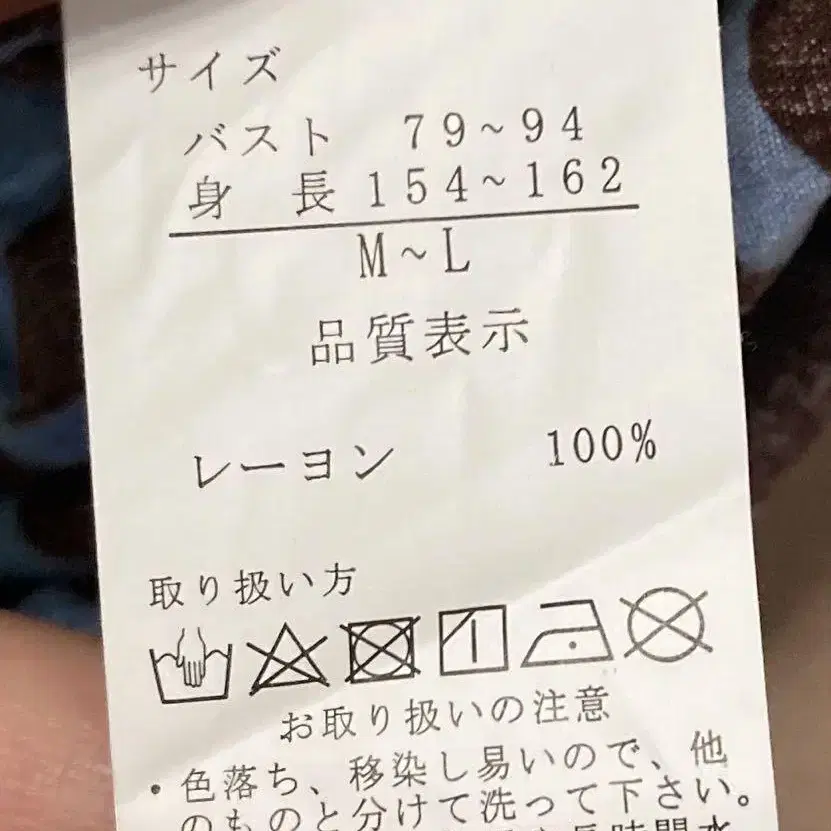 サイズ
バスト 79~94
身 長 154~162
M~L
品質表示
レーヨン 100%
取り扱い方
お取り扱いの注意
・色落ち、移染し易いので、他
のものと分けて洗って下さい。